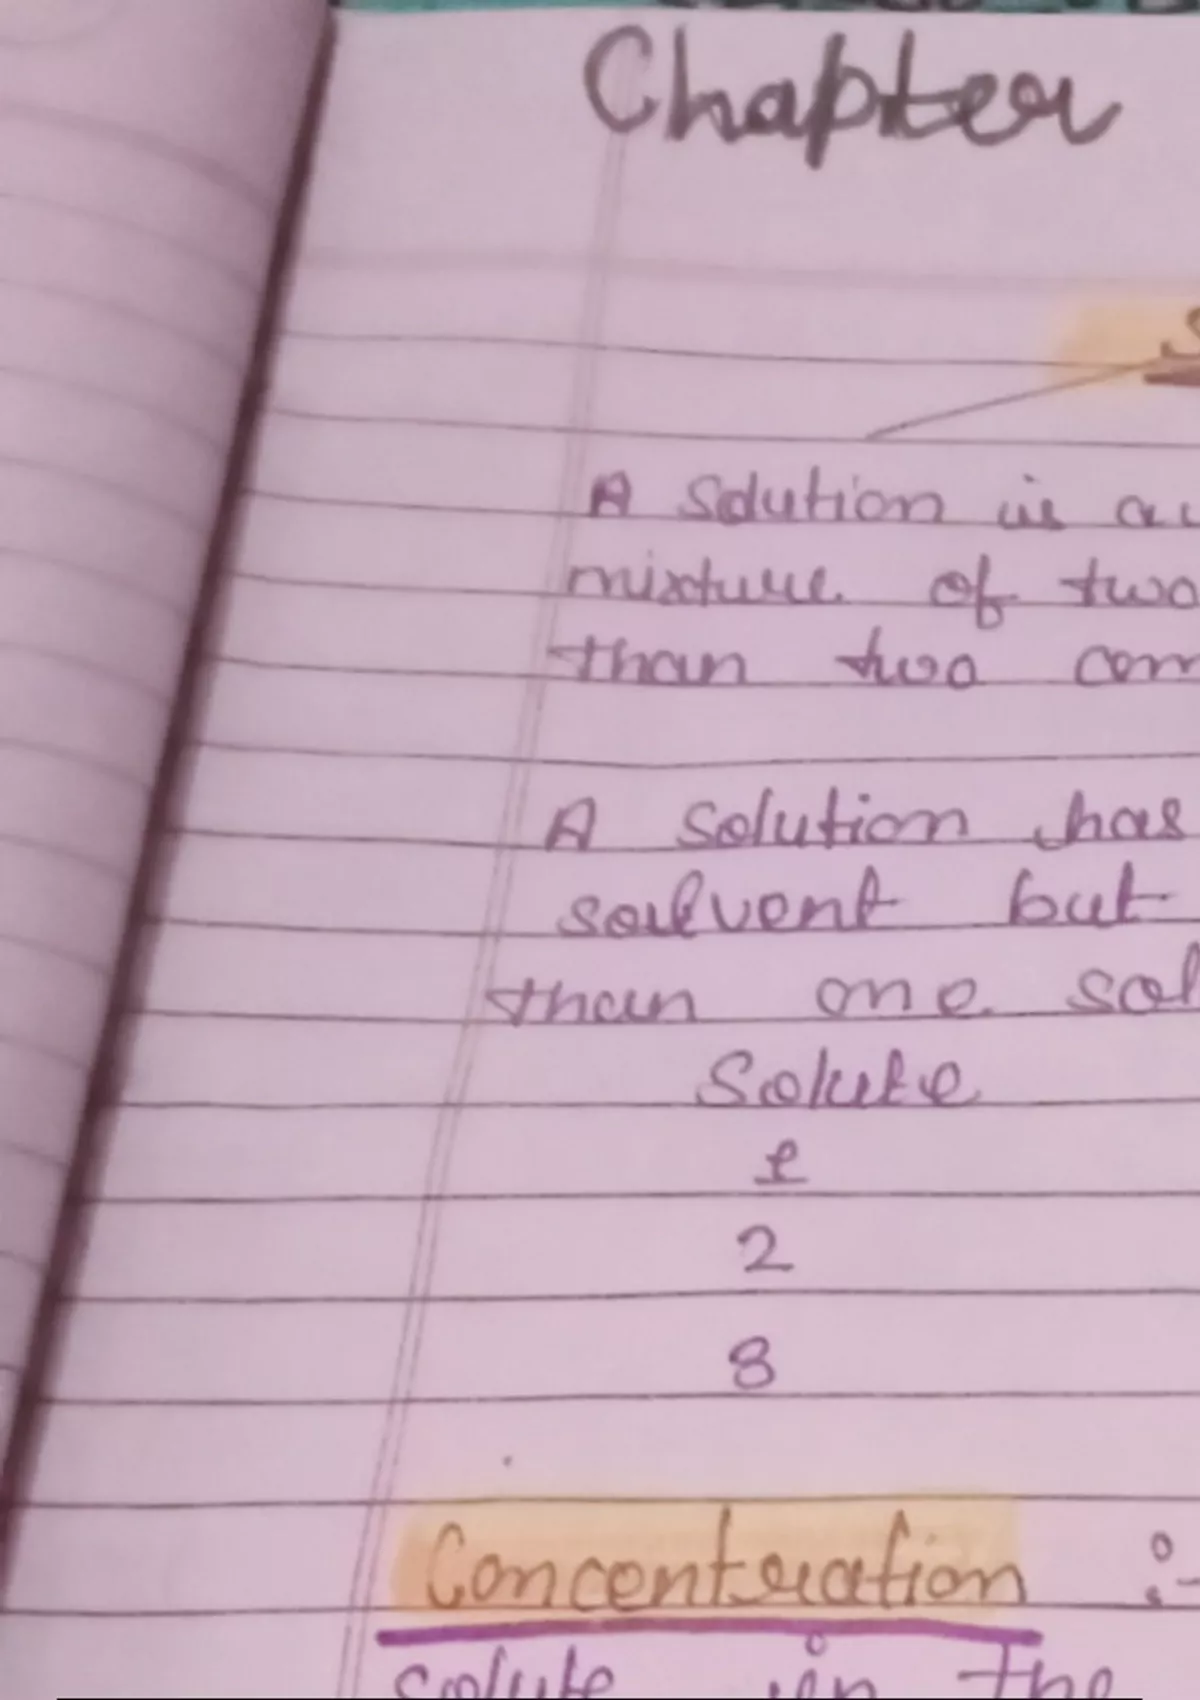 Chapter
A solution is
mixture of two
than two com
A solution has
solvent but
than one sol
Solute
1
2
8
Concentration :-
solute in the